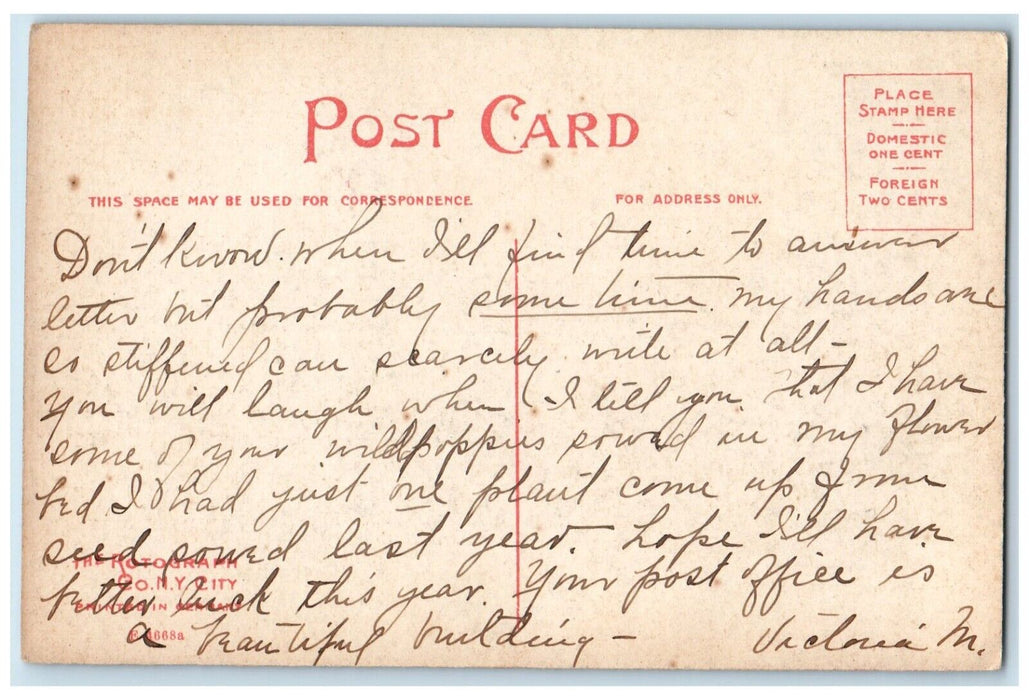 POST CARD
THIS SPACE MAY BE USED FOR CORRESPONDENCE
FOR ADDRESS ONLY.
PLACE
STAMP HERE
DOMESTIC
ONE CENT
FOREIGN
TWO CENTS
Don't know. when I'll find time to answer
letter but probably some time. my hands are
so stiffened can scarcely write at all -
You will laugh when I tell you that I have
some of your wild poppies sowed in my flower
bed I had just one plant come up from
seed sowed last year. hope I'll have
better luck this year. Your post office is
a beautiful building - Victoria M.
THE ROTOGRAPH
CO. N.Y. CITY
PRINTED IN GERMANY
E 4668a